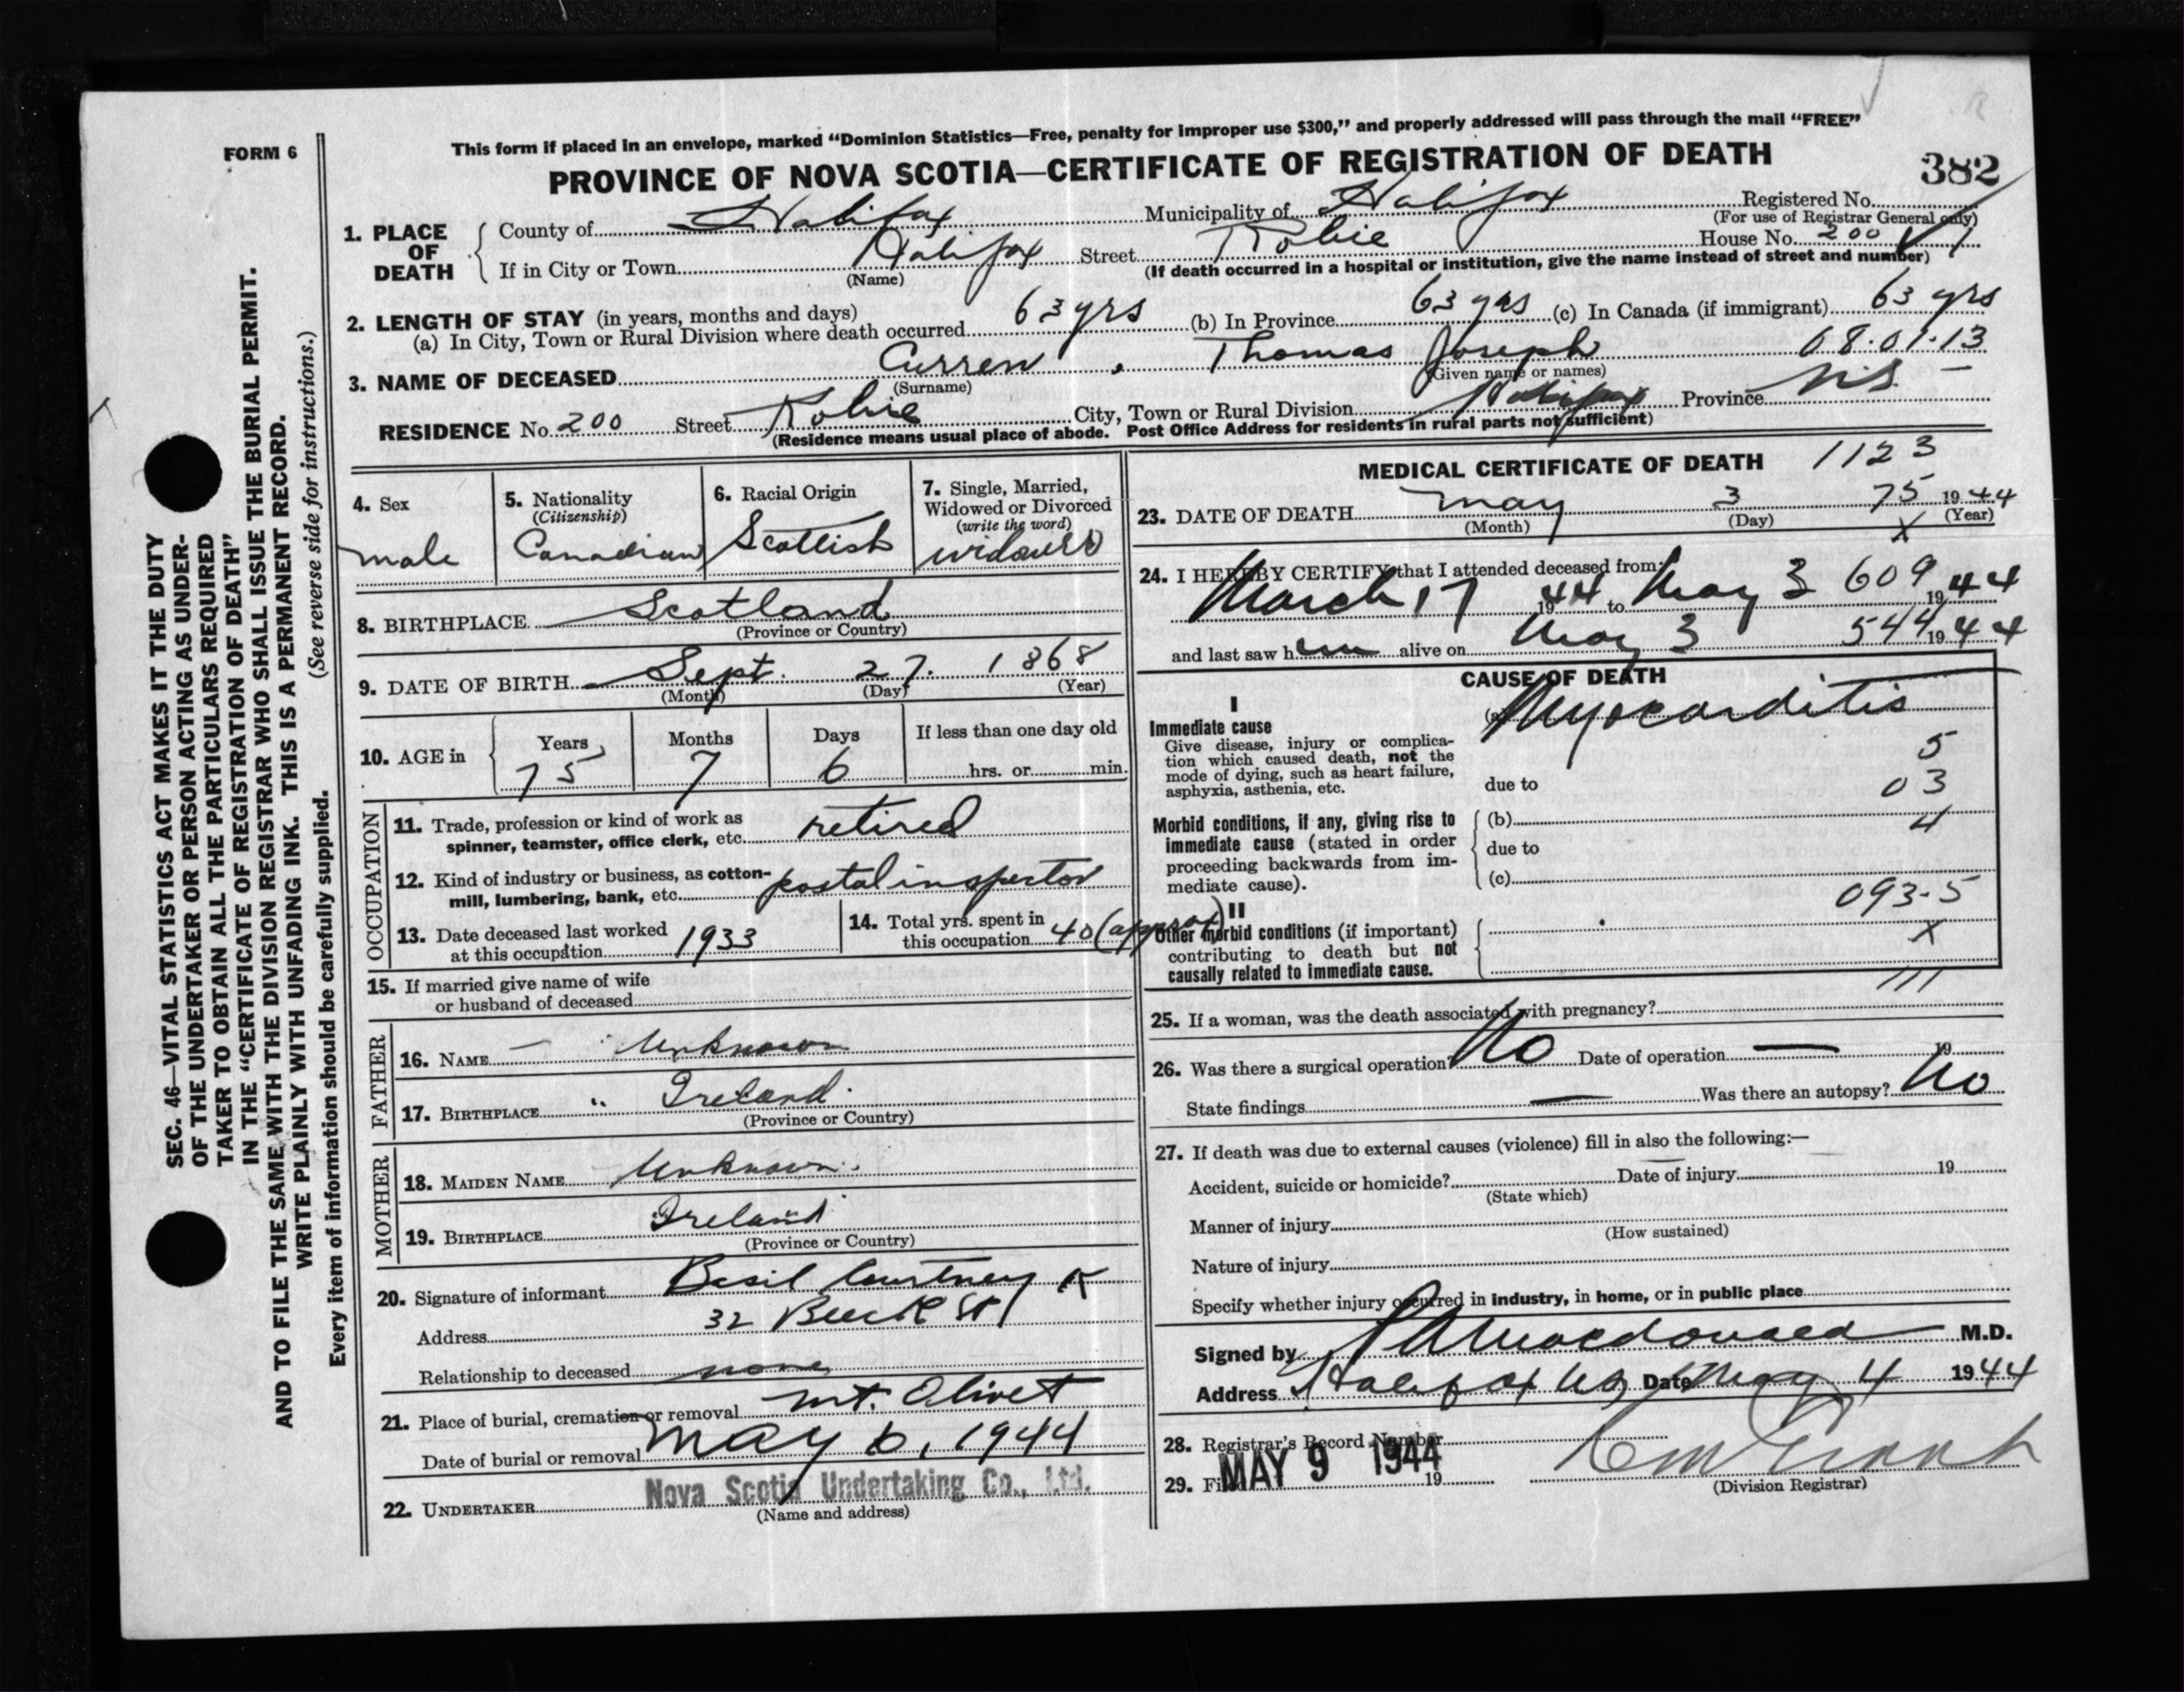 FORM 6
This form if placed in an envelope, marked “Dominion Statistics—Free, penalty for improper use $300,” and properly addressed will pass through the mail “FREE”
PROVINCE OF NOVA SCOTIA—CERTIFICATE OF REGISTRATION OF DEATH
382
1. PLACE OF DEATH
County of Halifax Municipality of Halifax Registered No.
(For use of Registrar General only)
If in City or Town Halifax Street Robie House No. 200
(Name) (If death occurred in a hospital or institution, give the name instead of street and number)
2. LENGTH OF STAY (in years, months and days)
(a) In City, Town or Rural Division where death occurred 63 yrs (b) In Province 63 yrs (c) In Canada (if immigrant) 63 yrs
3. NAME OF DECEASED Curren, Thomas Joseph 68.01.13
(Surname) (Given name or names)
RESIDENCE No. 200 Street Robie City, Town or Rural Division Halifax Province N.S. —
(Residence means usual place of abode. Post Office Address for residents in rural parts not sufficient)
4. Sex
male
5. Nationality
(Citizenship)
Canadian
6. Racial Origin
Scottish
7. Single, Married,
Widowed or Divorced
(write the word)
8. BIRTHPLACE Scotland
(Province or Country)
9. DATE OF BIRTH Sept. 27. 1868
(Month) (Day) (Year)
10. AGE in
Years Months Days If less than one day old
75 7 6 hrs. or min.
OCCUPATION
11. Trade, profession or kind of work as
spinner, teamster, office clerk, etc. retired
12. Kind of industry or business, as cotton-
mill, lumbering, bank, etc. postal inspector
13. Date deceased last worked
at this occupation 1933
14. Total yrs. spent in
this occupation 40 (approx)
15. If married give name of wife
or husband of deceased
FATHER
16. NAME — Unknown
17. BIRTHPLACE " Ireland.
(Province or Country)
MOTHER
18. MAIDEN NAME Unknown.
19. BIRTHPLACE Ireland
(Province or Country)
20. Signature of informant Basil Courtney
Address 32 St
Relationship to deceased none
21. Place of burial, cremation or removal mt. Olivet
Date of burial or removal may 6, 1944
22. UNDERTAKER Nova Scotia Undertaking Co., Ltd.
(Name and address)
MEDICAL CERTIFICATE OF DEATH 1123
23. DATE OF DEATH may 3 75 1944
(Month) (Day) (Year)
X
24. I HEREBY CERTIFY that I attended deceased from:
March 17 1944 to May 3 609 1944
and last saw him alive on May 3 544 1944
CAUSE OF DEATH
I
Immediate cause
Give disease, injury or complica-
tion which caused death, not the
mode of dying, such as heart failure,
asphyxia, asthenia, etc.
(a) Myocarditis
5
due to 03
Morbid conditions, if any, giving rise to
immediate cause (stated in order
proceeding backwards from im-
mediate cause).
(b) 4
due to
(c)
093-5
II
Other morbid conditions (if important)
contributing to death but not
causally related to immediate cause.
X
111
25. If a woman, was the death associated with pregnancy?
26. Was there a surgical operation? No Date of operation — 19
State findings — Was there an autopsy? No
27. If death was due to external causes (violence) fill in also the following:—
Accident, suicide or homicide? Date of injury 19
(State which)
Manner of injury
(How sustained)
Nature of injury
Specify whether injury occurred in industry, in home, or in public place
Signed by Macdonald M.D.
Address Halifax NS Date May 4 1944
28. Registrar's Record Number
29. Filed MAY 9 1944 19
(Division Registrar)
SEC. 46—VITAL STATISTICS ACT MAKES IT THE DUTY
OF THE UNDERTAKER OR PERSON ACTING AS UNDER-
TAKER TO OBTAIN ALL THE PARTICULARS REQUIRED
IN THE “CERTIFICATE OF REGISTRATION OF DEATH”
AND TO FILE THE SAME WITH THE DIVISION REGISTRAR WHO SHALL ISSUE THE BURIAL PERMIT.
WRITE PLAINLY WITH UNFADING INK. THIS IS A PERMANENT RECORD.
Every item of information should be carefully supplied. (See reverse side for instructions.)